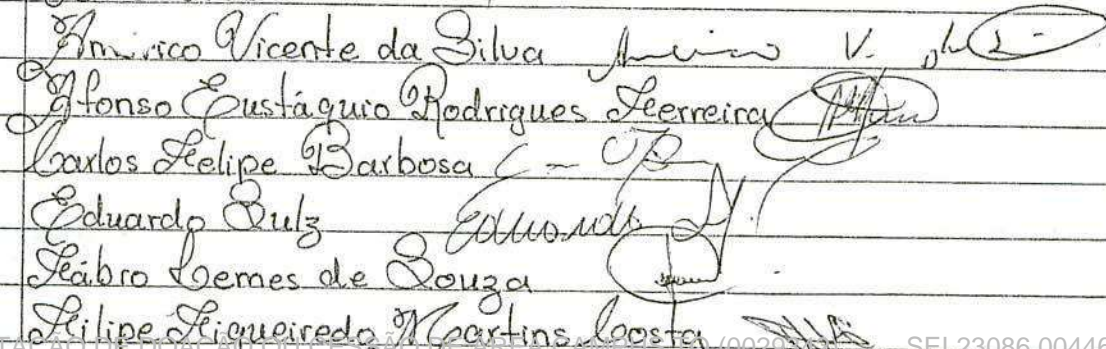 Américo Vicente da Silva
Afonso Eustáquio Rodrigues Ferreira
Carlos Felipe Barbosa
Eduardo Sulz Eduardo S.
Fábio Lemes de Souza
Filipe Figueiredo Martins Costa
SEI 23086.00446